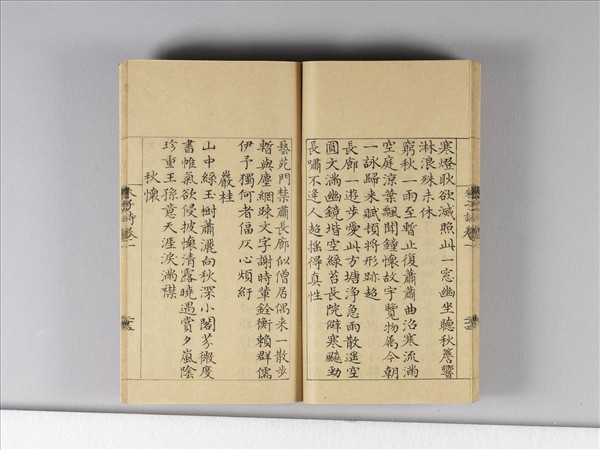 寒燈耿欲滅照此一窓幽坐聽秋簷響
淋浪殊未休
窮秋一雨至暫止復蕭蕭曲沼寒流滿
空庭涼葉飄聞鐘懷故宇覽物屬今朝
一詠歸來賦頓將形跡超
長廊一遊步愛此方塘淨急雨散遥空
圓文滿幽鏡堦空綠苔長院僻寒飈勁
長嘯不逢人超揺得真性
藝苑門禁肅長廊似僧居偶来一散步
暫與塵網疎文字謝時軰銓衡賴群儒
伊予獨何者偪仄心煩紆
巖桂
山中綠玉樹蕭灑向秋深小閣芬微度
書帷氣欲侵披懐清露曉遇賞夕嵐陰
珍重王孫意天涯淚滿襟
秋懐